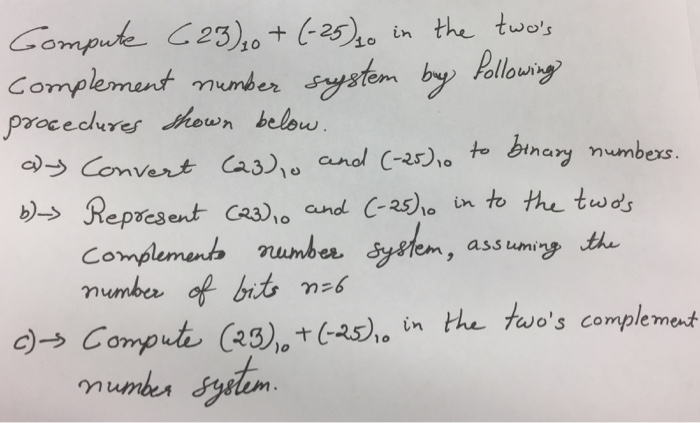 Compute (23)₁₀ + (-25)₁₀ in the two's
Complement number system by following
procedures shown below.
a)→ Convert (23)₁₀ and (-25)₁₀ to binary numbers.
b)→ Represent (23)₁₀ and (-25)₁₀ in to the two's
Complements number system, assuming the
number of bits n=6
c)→ Compute (23)₁₀ + (-25)₁₀ in the two's complement
number system.